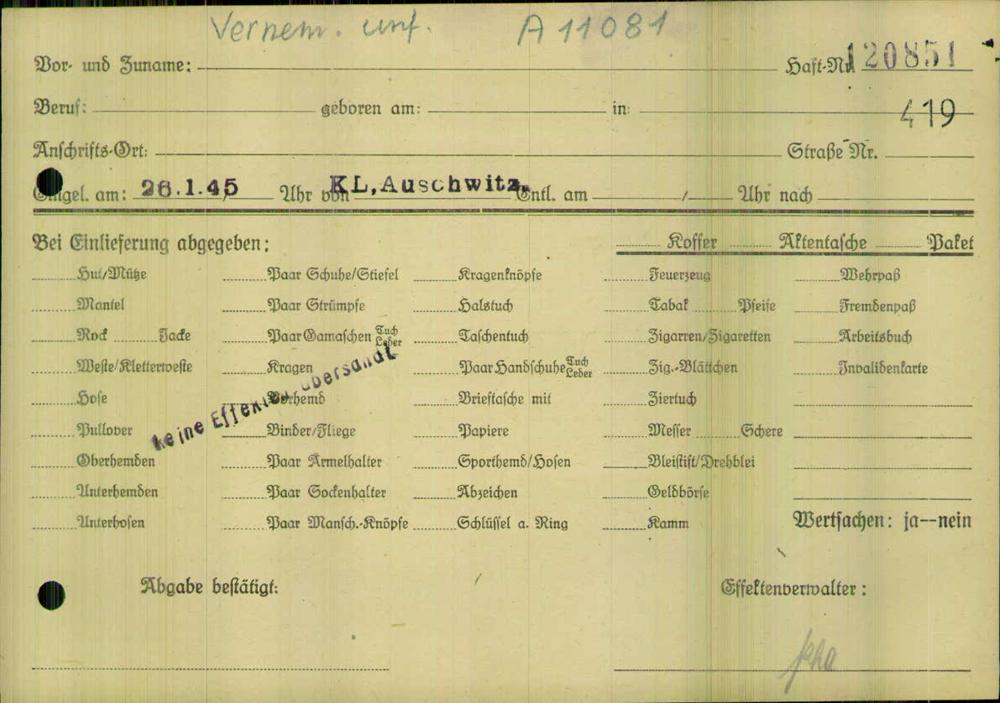 Vernem. unf. A 11081
Vor- und Zuname: Haft-Nr. 120851
Beruf: geboren am: in: 419
Anschrifts-Ort: Straße Nr.
Eingel. am: 26.1.45 / Uhr von KL, Auschwitz, Entl. am / Uhr nach
Bei Einlieferung abgegeben: Koffer Aktentasche Paket
Hut/Mütze Paar Schuhe/Stiefel Kragenknöpfe Feuerzeug Wehrpaß
Mantel Paar Strümpfe Halstuch Tabak Pfeife Fremdenpaß
Rock Jacke Paar Gamaschen Tuch Leder Taschentuch Zigarren/Zigaretten Arbeitsbuch
Weste/Kletterweste Kragen Paar Handschuhe Tuch Leder Zig.-Blättchen Invalidenkarte
Hose Vorhemd Brieftasche mit Ziertuch
keine Effekten übersandt
Pullover Binder/Fliege Papiere Messer Schere
Oberhemden Paar Ärmelhalter Sporthemd/Hosen Bleistift/Drehblei
Unterhemden Paar Sockenhalter Abzeichen Geldbörse
Unterhosen Paar Mansch.-Knöpfe Schlüssel a. Ring Kamm Wertsachen: ja--nein
Abgabe bestätigt: Effektenverwalter: